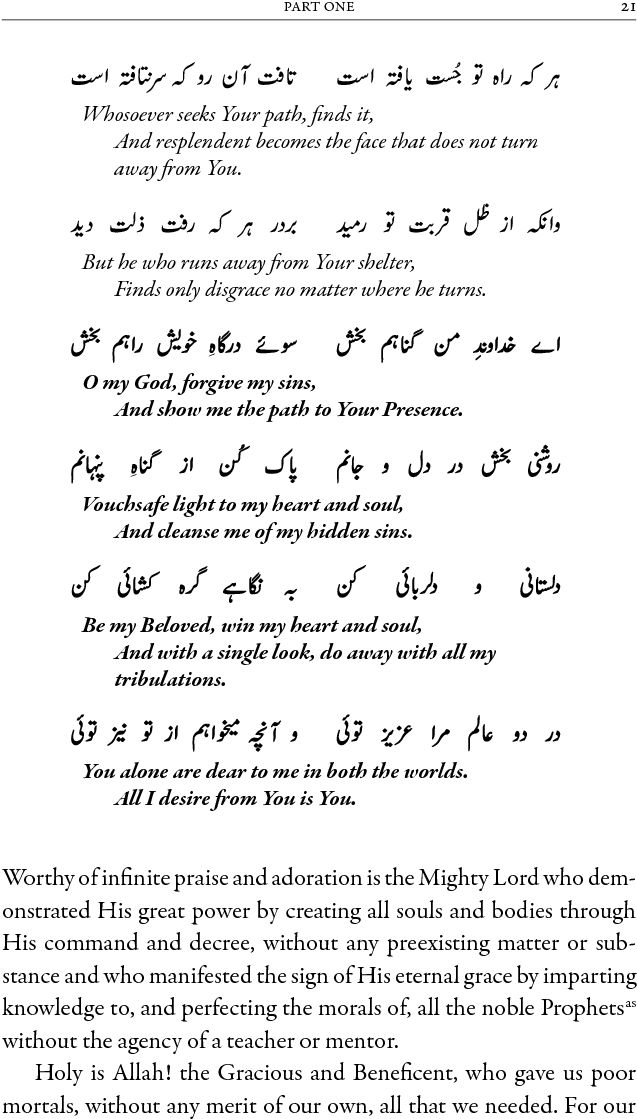 PART ONE 21
ہر کہ راہ تو جُست یافتہ است تافت آں رو کہ سرنتافتہ است
Whosoever seeks Your path, finds it,
And resplendent becomes the face that does not turn
away from You.
وانکہ از ظل قربت تو رمید بردر ہر کہ رفت ذلت دید
But he who runs away from Your shelter,
Finds only disgrace no matter where he turns.
اے خداوندِ من گناہم بخش سوئے درگاہِ خویش راہم بخش
O my God, forgive my sins,
And show me the path to Your Presence.
روشنی بخش در دل و جانم پاک کُن از گناہِ پنہانم
Vouchsafe light to my heart and soul,
And cleanse me of my hidden sins.
دلستانی و دلربائی کن بہ نگاہے گرہ کشائی کن
Be my Beloved, win my heart and soul,
And with a single look, do away with all my
tribulations.
در دو عالم مرا عزیز توئی و آنچہ میخواہم از تو نیز توئی
You alone are dear to me in both the worlds.
All I desire from You is You.
Worthy of infinite praise and adoration is the Mighty Lord who dem-
onstrated His great power by creating all souls and bodies through
His command and decree, without any preexisting matter or sub-
stance and who manifested the sign of His eternal grace by imparting
knowledge to, and perfecting the morals of, all the noble Prophetsas
without the agency of a teacher or mentor.
Holy is Allah! the Gracious and Beneficent, who gave us poor
mortals, without any merit of our own, all that we needed. For our